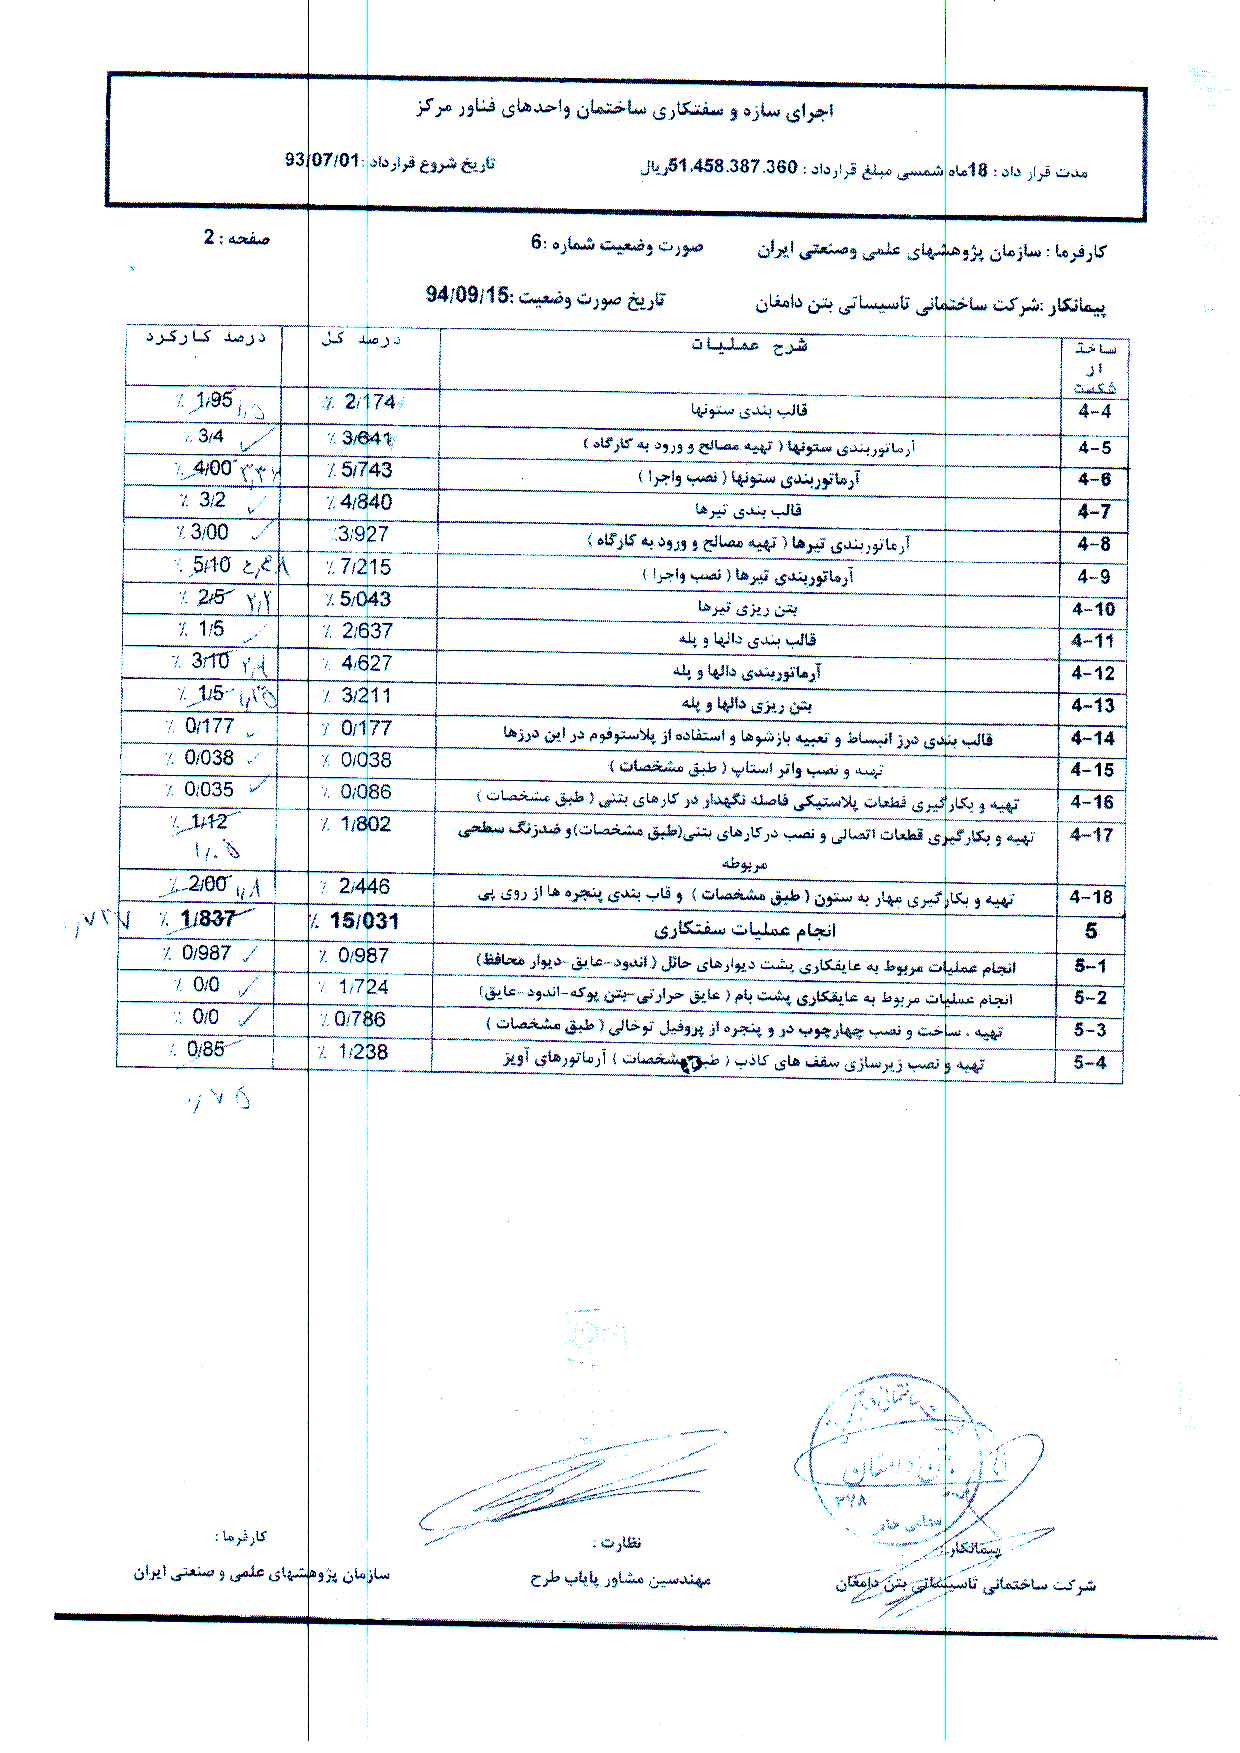 اجرای سازه و سفتکاری ساختمان واحدهای فناور مرکز
مدت قرار داد : 18ماه شمسی مبلغ قرارداد : 51.458.387.360ریال تاریخ شروع قرارداد :93/07/01
کارفرما : سازمان پژوهشهای علمی وصنعتی ایران صورت وضعیت شماره :6 صفحه : 2
پیمانکار :شرکت ساختمانی تاسیساتی بتن دامغان تاریخ صورت وضعیت :94/09/15
ساختار شکست شرح عملیات درصد کل درصد کارکرد
4-4 قالب بندی ستونها 2/174 ٪ 1/95 ٪ ۱٫۵
4-5 آرماتوربندی ستونها ( تهیه مصالح و ورود به کارگاه ) 3/641 ٪ 3/4 ٪
4-6 آرماتوربندی ستونها ( نصب واجرا ) 5/743 ٪ 4/00 ٪
4-7 قالب بندی تیرها 4/840 ٪ 3/2 ٪
4-8 آرماتوربندی تیرها ( تهیه مصالح و ورود به کارگاه ) 3/927 ٪ 3/00 ٪
4-9 آرماتوربندی تیرها ( نصب واجرا ) 7/215 ٪ 5/10 ٪
4-10 بتن ریزی تیرها 5/043 ٪ 2/5 ٪ ۲٫۲
4-11 قالب بندی دالها و پله 2/637 ٪ 1/5 ٪
4-12 آرماتوربندی دالها و پله 4/627 ٪ 3/10 ٪
4-13 بتن ریزی دالها و پله 3/211 ٪ 1/5 ٪ ۱٫۲۵
4-14 قالب بندی درز انبساط و تعبیه بازشوها و استفاده از پلاستوفوم در این درزها 0/177 ٪ 0/177 ٪
4-15 تهیه و نصب واتر استاپ ( طبق مشخصات ) 0/038 ٪ 0/038 ٪
4-16 تهیه و بکارگیری قطعات پلاستیکی فاصله نگهدار در کارهای بتنی ( طبق مشخصات ) 0/086 ٪ 0/035 ٪
4-17 تهیه و بکارگیری قطعات اتصالی و نصب درکارهای بتنی(طبق مشخصات)و ضدزنگ سطحی 1/802 ٪ 1/12 ٪
مربوطه ۱/۰۵
4-18 تهیه و بکارگیری مهار به ستون ( طبق مشخصات ) و قاب بندی پنجره ها از روی پی 2/446 ٪ 2/00 ٪ ۱٫۸
5 انجام عملیات سفتکاری 15/031 ٪ 1/837 ٪ ۱٫۷۳۷
5-1 انجام عملیات مربوط به عایقکاری پشت دیوارهای حائل ( اندود-عایق-دیوار محافظ) 0/987 ٪ 0/987 ٪
5-2 انجام عملیات مربوط به عایقکاری پشت بام ( عایق حرارتی-بتن پوکه-اندود-عایق) 1/724 ٪ 0/0 ٪
5-3 تهیه ، ساخت و نصب چهارچوب در و پنجره از پروفیل توخالی ( طبق مشخصات ) 0/786 ٪ 0/0 ٪
5-4 تهیه و نصب زیرسازی سقف های کاذب ( طبق مشخصات ) آرماتورهای آویز 1/238 ٪ 0/85 ٪
۰٫۷۵
بتن دامغان
۳۷۸
سهامی خاص
پیمانکار : نظارت : کارفرما :
شرکت ساختمانی تاسیساتی بتن دامغان مهندسین مشاور پایاب طرح سازمان پژوهشهای علمی و صنعتی ایران